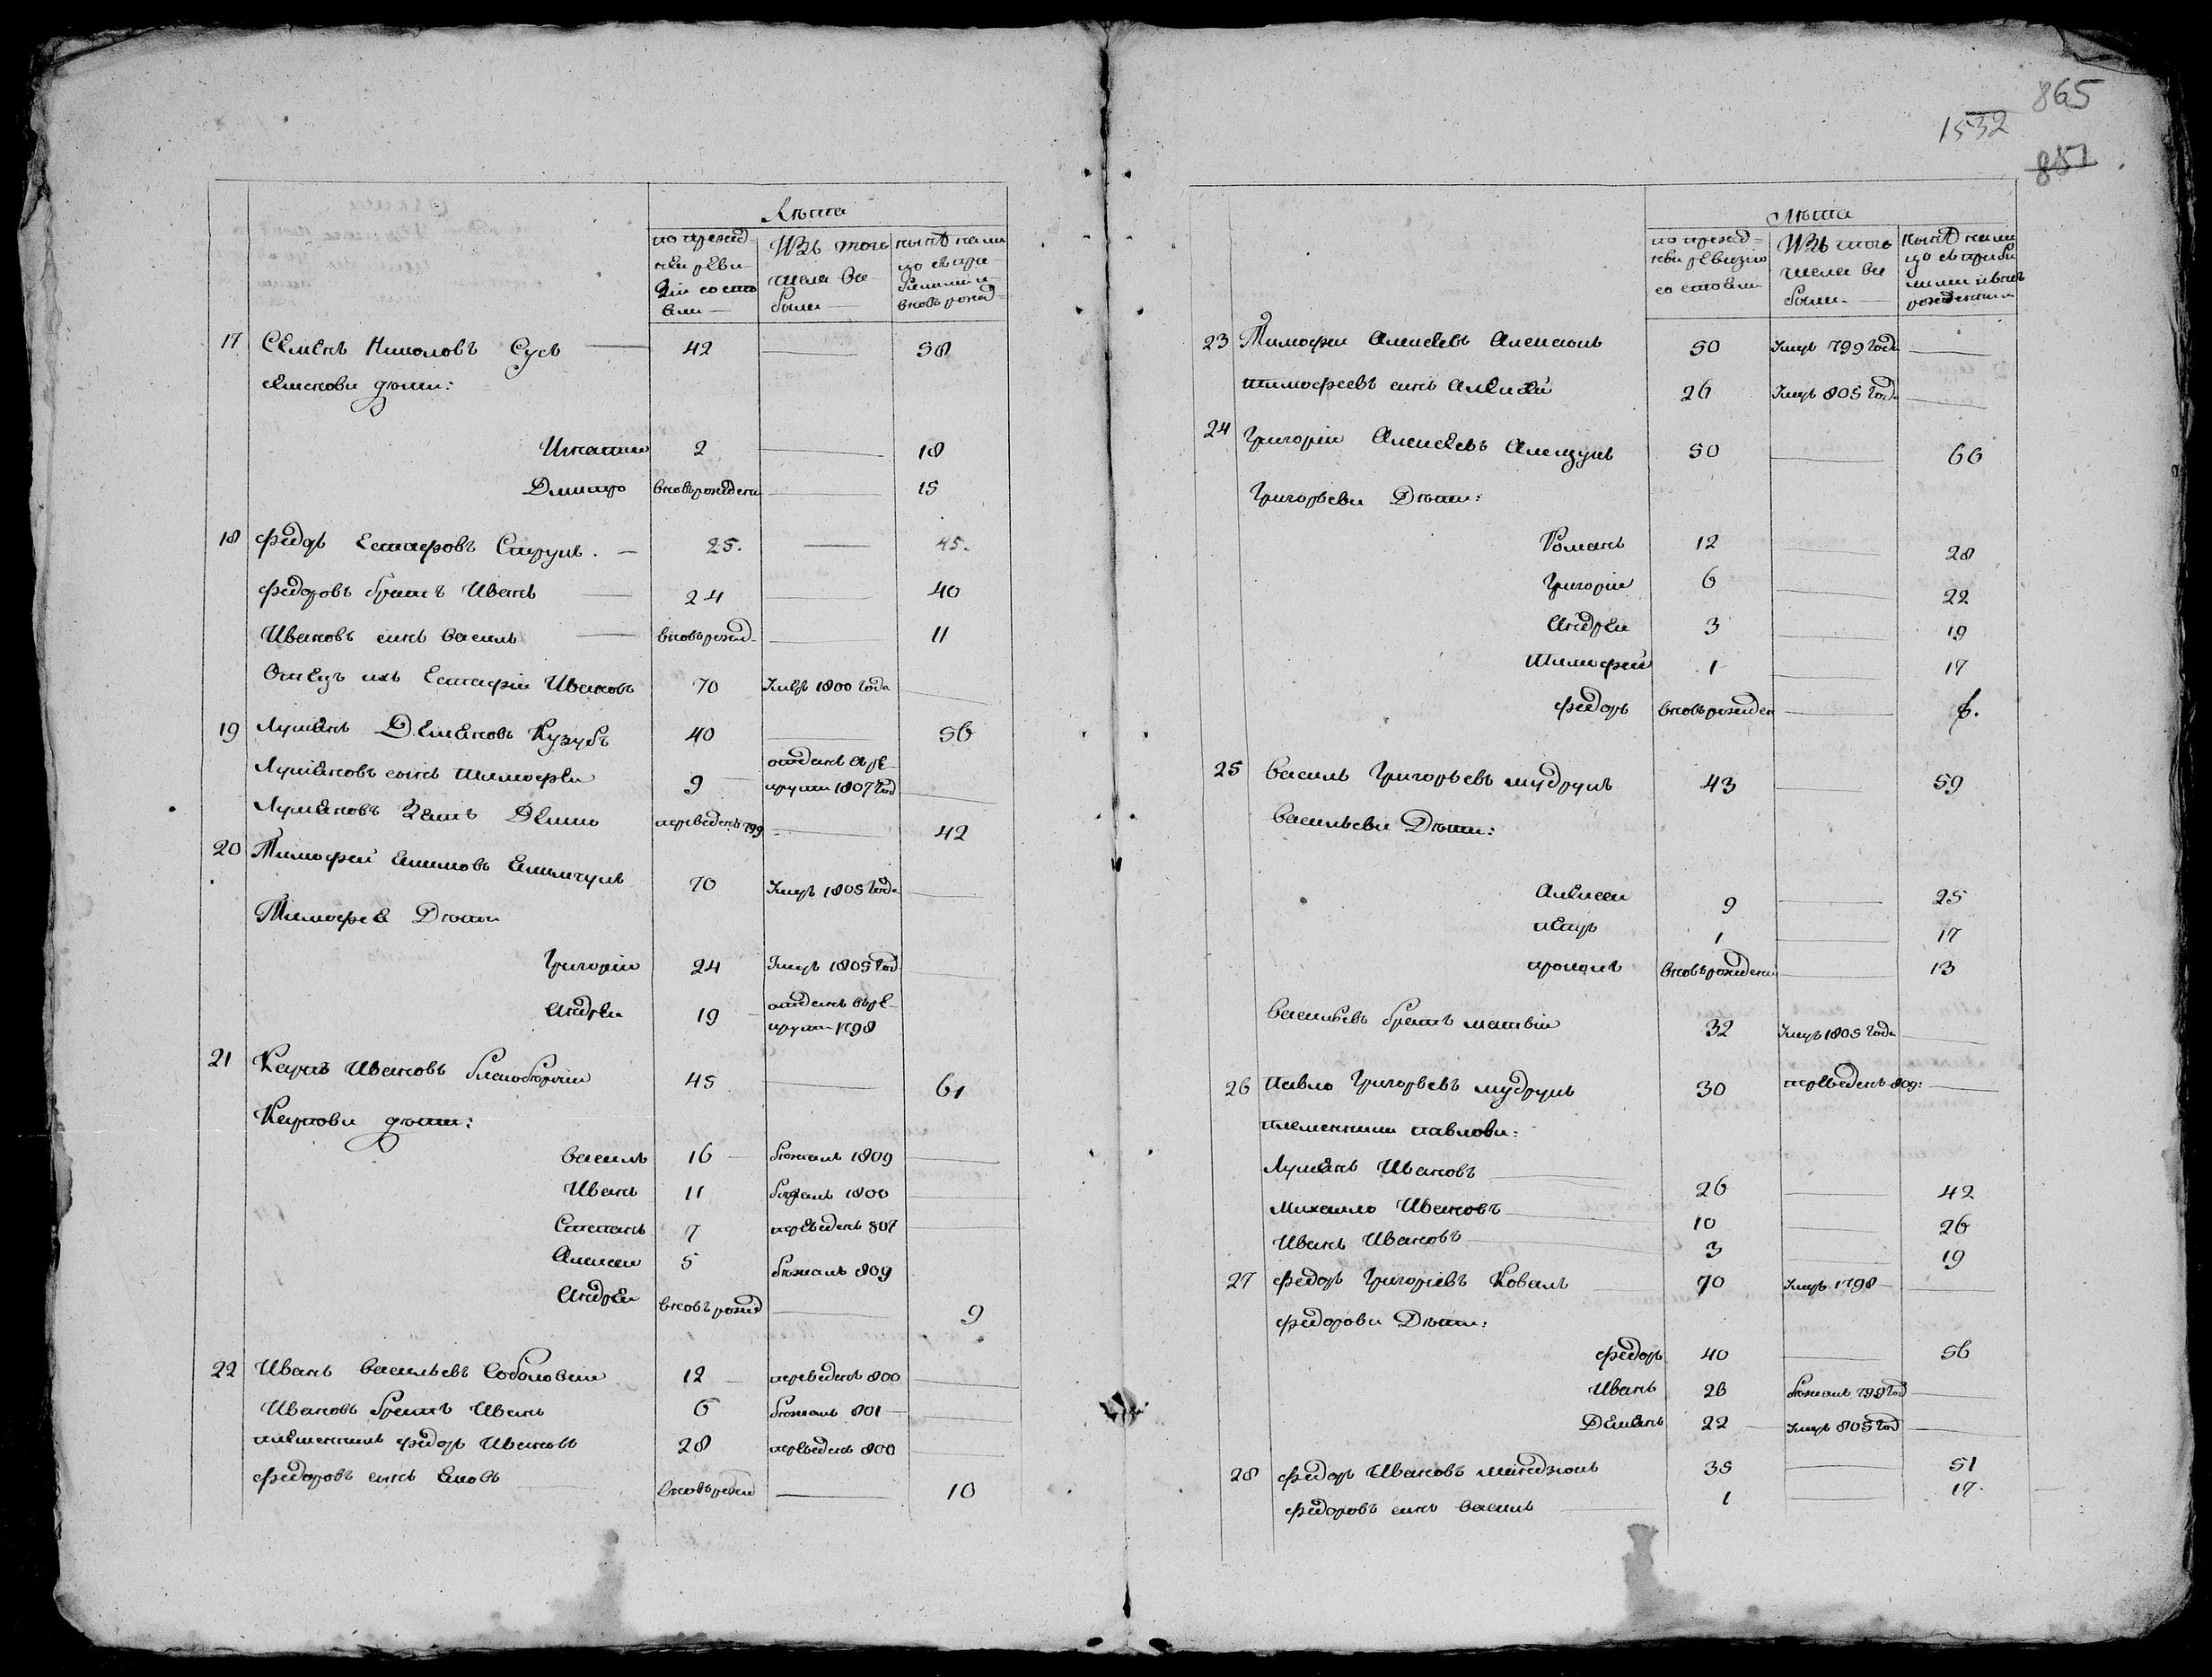 865
1532
851
Лѣта
по прежд-
ней реви-
зіи состо
яли
Изъ того
числа вы
были
нынѣ на ли
цо съ при
былыми и
вновь рожд
17 Семенъ Николовъ Сусь 42 58
семенови дѣти:
Игнатии 2 18
Дмитро вновьрожденъ 15
18 Федоръ Естафовъ Струкъ 25. 45.
Федоровъ братъ Иванъ 24 40
Ивановъ синъ василь вновьрожд 11
Отецъ ихъ Естафіи Ивановъ 70 Умеръ 1800 года
19 Лукянъ Демяновъ Кузубъ 40 56
Лукяновъ синъ тимофеи 9 отданъ въре-
крути 1807 год
Лукяновъ Зять Демко переведенъ 799 42
20 Тимофей Екимовъ 70 Умръ 1805 года
Тимофея Дѣти
Григоріи 24 Умръ 1805 год
Андреи 19 отданъ въре-
крути 1798
21 Карпъ Ивановъ 45 61
Карпови дѣти:
василь 16 бѣжалъ 1809
Иванъ 11 бѣжалъ 1800
Степанъ 7 переведенъ 807
Алексеи 5 бѣжалъ 809
Андреи вновьрожд 9
22 Иванъ васильевъ Соболовскии 12 переведенъ 800
Ивановъ братъ Иванъ 6 бѣжалъ 801
племенникъ федоръ Ивановъ 28 переведенъ 800
федоровъ синъ Яковъ вновьрожд 10
Лѣта
по прежд-
неи ревизіи
состояли
Изъ того
числа вы
были
нынѣ на ли
цо съ прибы
лыми ивновь
рожденными
23 Тимофеи Алексеевъ 50 Умръ 799 года
тимофеевъ синъ Алексѣй 26 Умръ 805 год
24 Григоріи Алексеевъ 50 66
Григорьеви Дѣти:
Романъ 12 28
Григоріи 6 22
Андреи 3 19
Тимофей 1 17
федоръ вновьрожден 6.
25 василь Григорьевъ мудрукъ 43 59
васильеви Дѣти:
Алексеи 9 25
петръ 1 17
прокопъ вновьрожденъ 13
васильевъ братъ матвіи 32 Умръ 1805 года
26 павло Григорьевъ мудрукъ 30 переведенъ 809:
племенники павлови:
Лукянъ Ивановъ 26 42
Михаило Ивановъ 10 26
Иванъ Ивановъ 3 19
27 федоръ Григоріевъ Коваль 70 Умръ 1798
федорови Дѣти:
федоръ 40 56
Иванъ 26 бѣжалъ 799 год
Демянъ 22 Умръ 805 год
28 федоръ Ивановъ 35 51
федоровъ синъ василь 1 17.